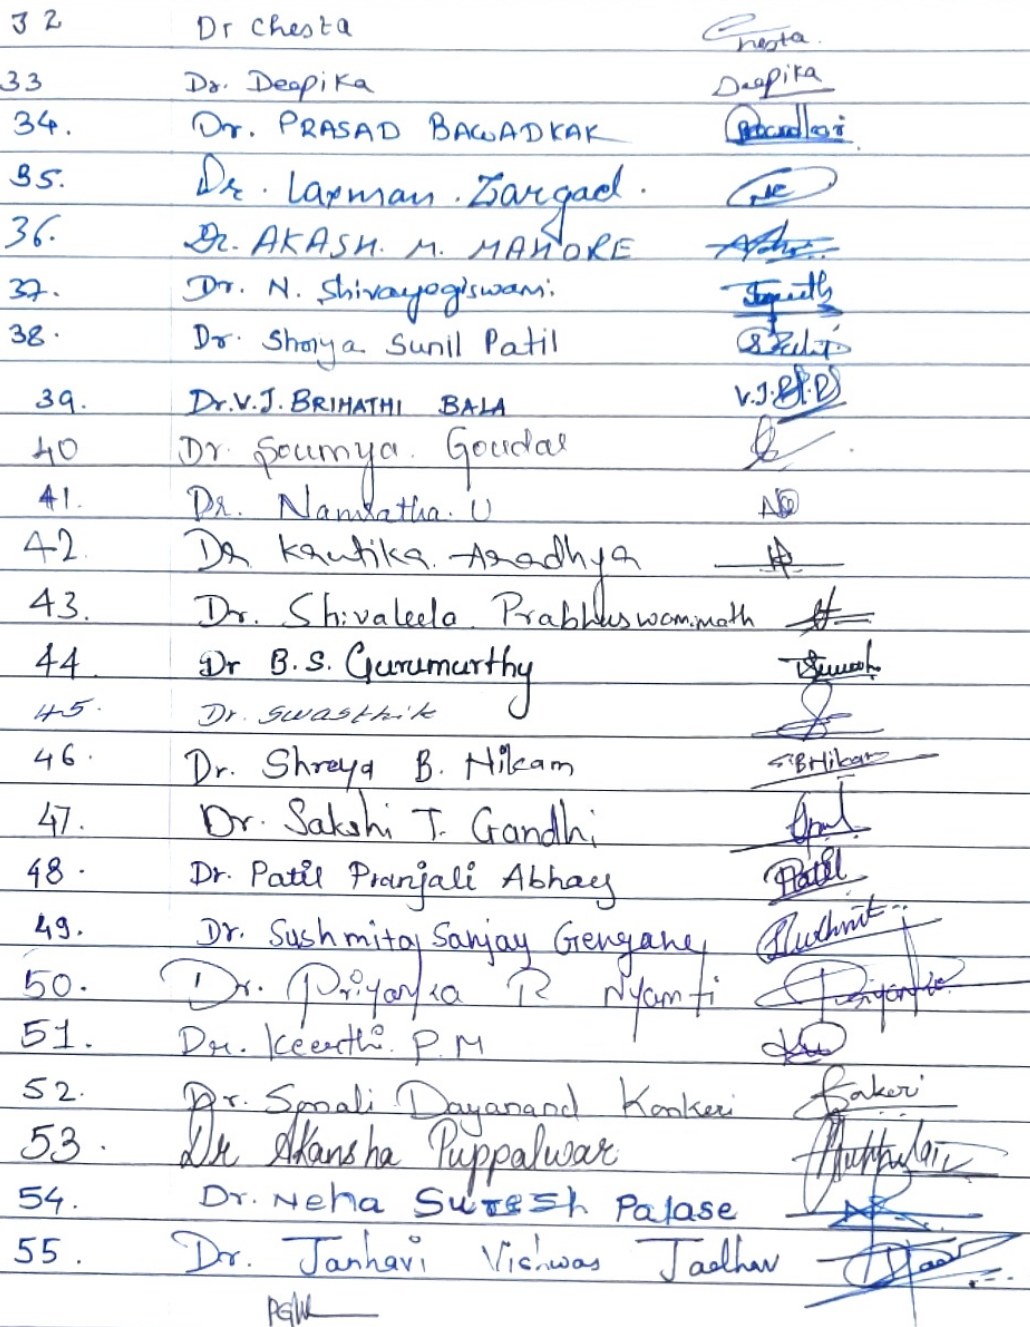 32 Dr Chesta Chesta.
33 Dr. Deepika Deepika
34. Dr. PRASAD BAWADKAR
35. Dr. Laxman. Zargad.
36. Dr. AKASH. M. MAHORE
37. Dr. N. Shivayogiswami.
38. Dr. Shriya Sunil Patil
39. Dr.V.J. BRIHATHI BALA V.J.
40 Dr. Soumya. Goudar
41. Dr. Namratha. U
42. Dr Krutika. Aradhya
43. Dr. Shivaleela Prabhuswamimath
44 Dr B.S. Gurumurthy
45. Dr. Swasthik
46. Dr. Shreya B. Nikam
47. Dr. Sakshi T. Gandhi
48. Dr. Patil Pranjali Abhay Patil
49. Dr. Sushmita Sanjay Gengane
50. Dr. Priyanka R Nyamti Priyanka
51. Dr. Keerthi. P.M
52. Dr. Sonali Dayanand Konkeri
53. Dr Akansha Puppalwar
54. Dr. Neha Suresh Palase
55. Dr. Janhavi Vishwas Jadhav